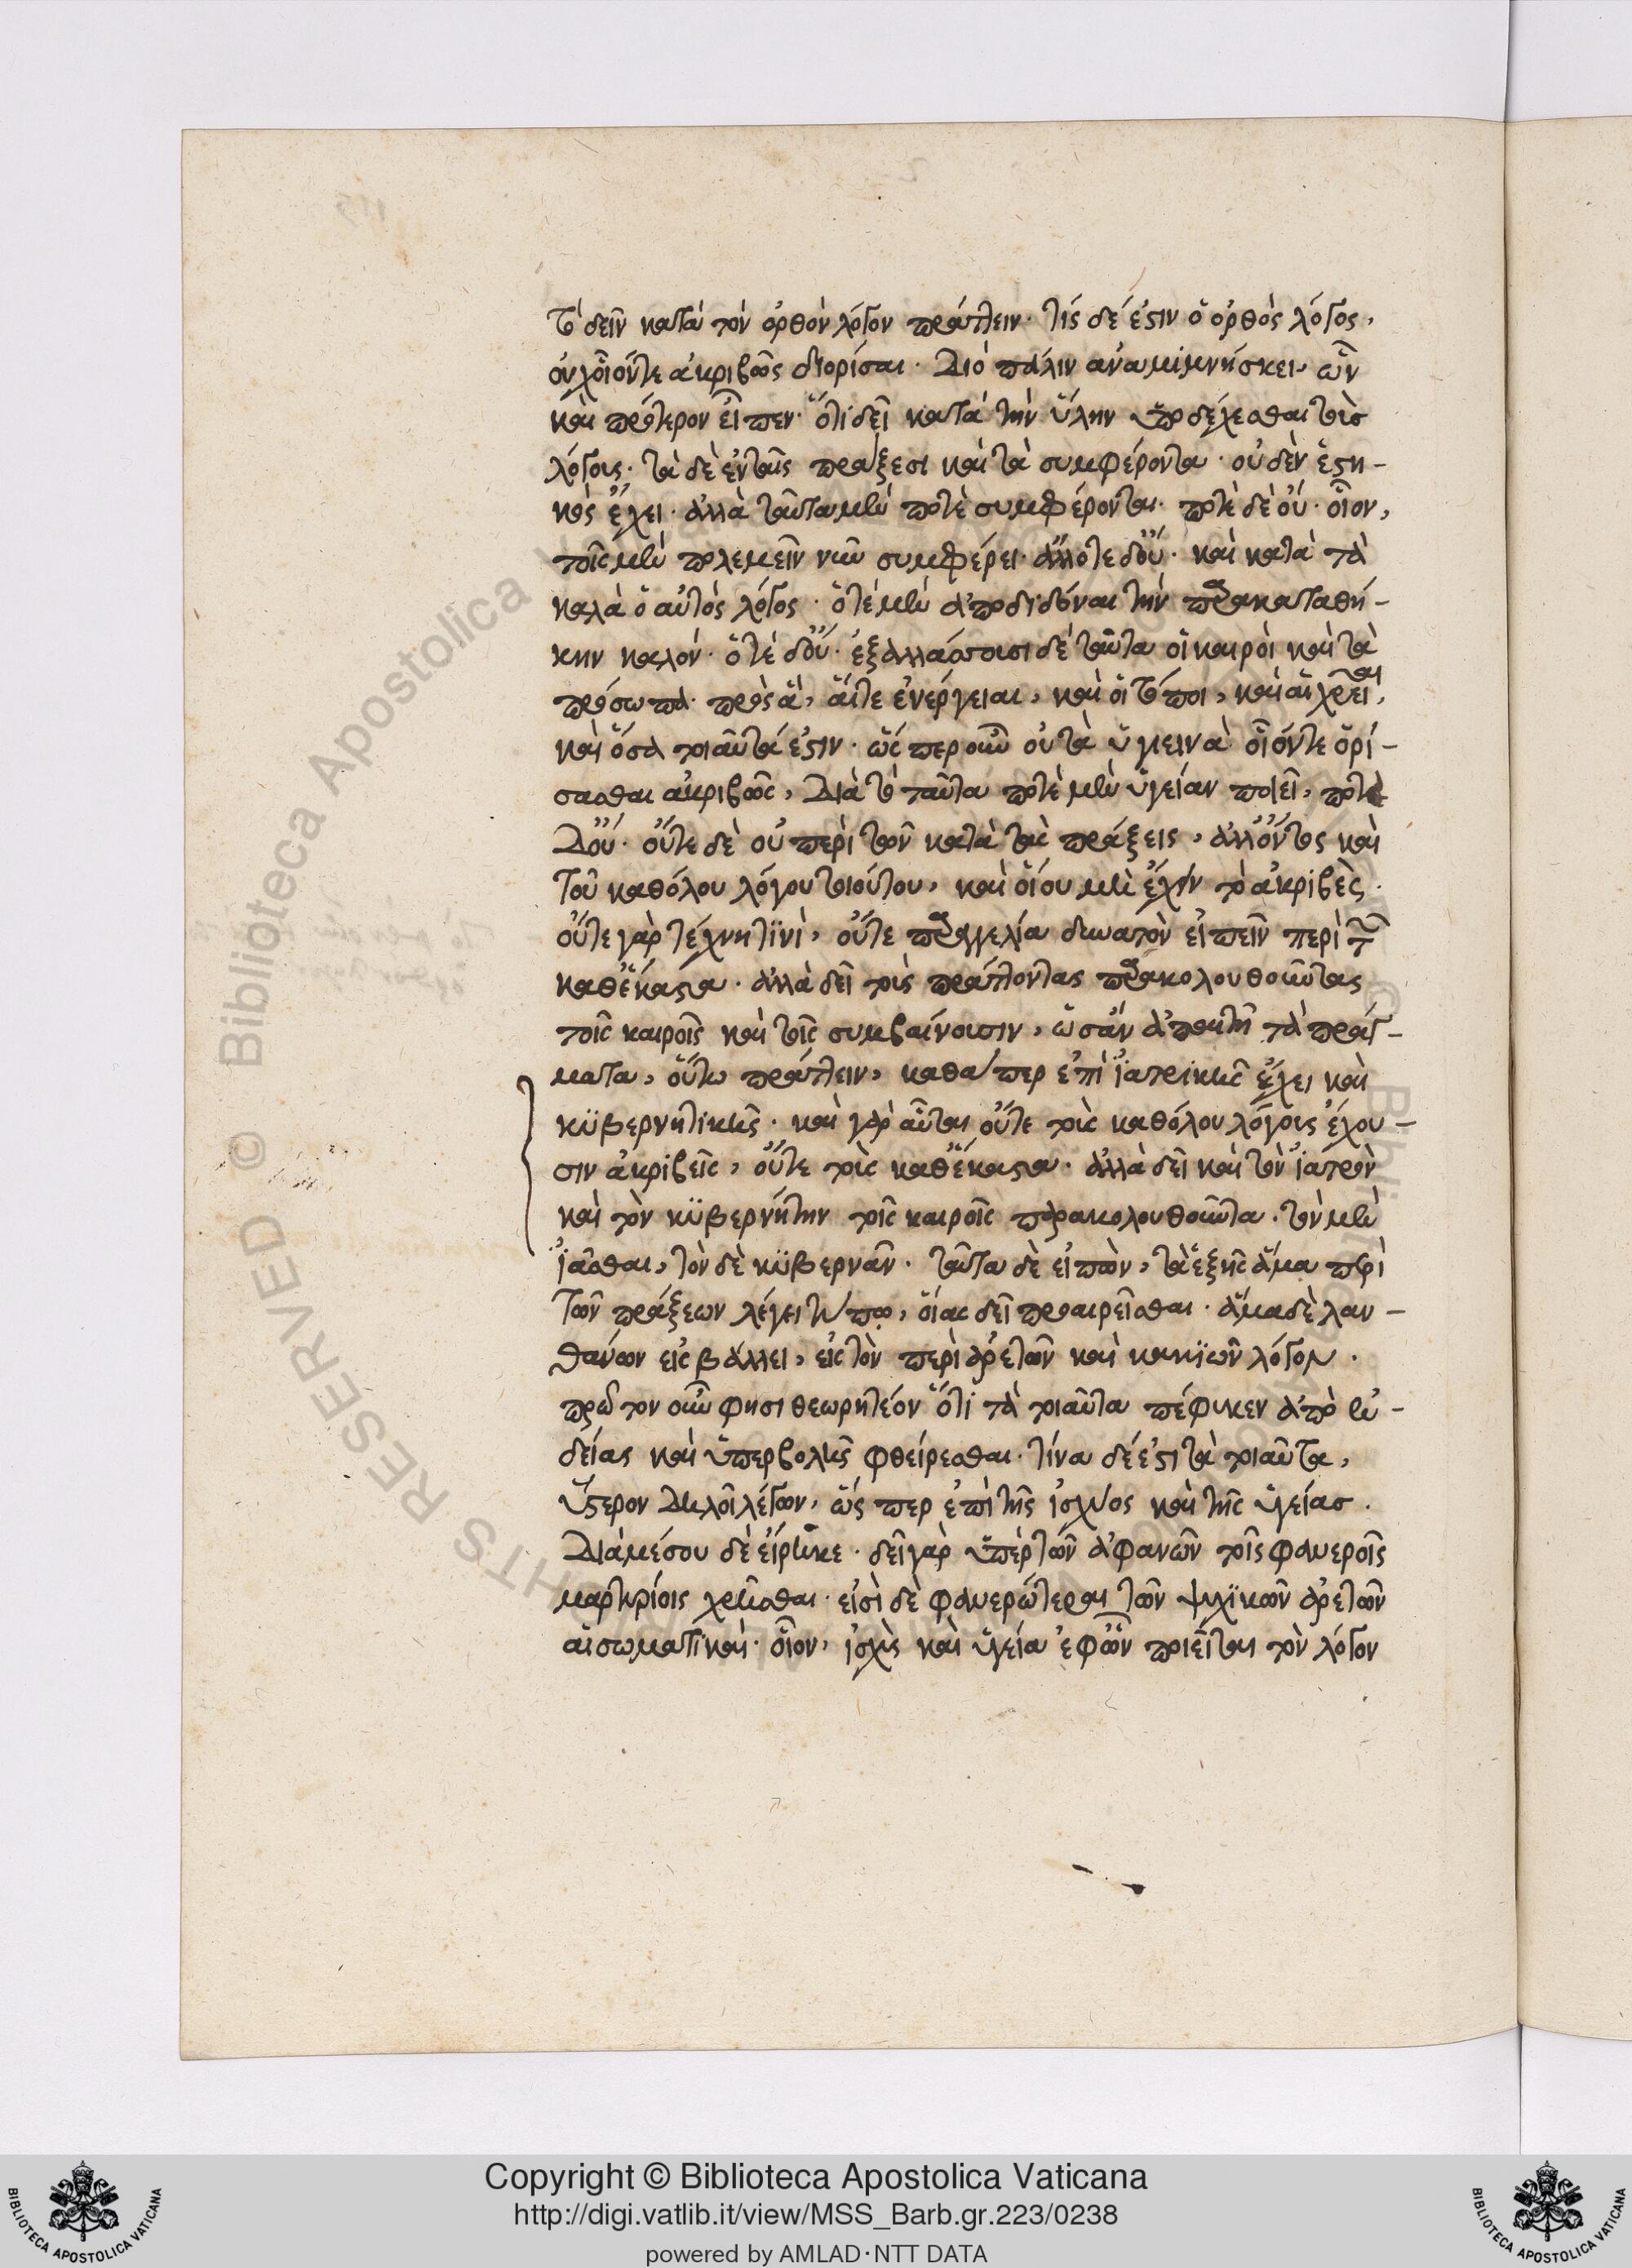 τὸ δεῖν κατὰ τὸν ὀρθὸν λόγον πράττειν· τίς δέ ἐστιν ὁ ὀρθὸς λόγος,
οὐχ οἷόντε ἀκριβῶς διορίσαι· Διὸ πάλιν ἀναμιμνήσκει ὧν
καὶ πρότερον εἶπεν· ὅτι δεῖ κατὰ τὴν ὕλην ἀποδέχεσθαι τοὺς
λόγους· τὰ δὲ ἐν ταῖς πράξεσι καὶ τὰ συμφέροντα· οὐδὲν ἑστη-
κὸς ἔχει· ἀλλὰ ταῦτα μὲν ποτὲ συμφέροντα· ποτὲ δὲ οὔ· οἷον,
τοῖς μὲν πολεμεῖν νῦν συμφέρει· ἄλλοτε δ' οὔ· καὶ κατὰ τὰ
καλὰ ὁ αὐτὸς λόγος· ὁτὲ μὲν ἀποδιδόναι τὴν παρακαταθή-
κην καλόν· ὁτὲ δ' οὔ· ἐξαλλάσσουσι δὲ ταῦτα οἱ καιροὶ καὶ τὰ
πρόσωπα πρὸς ἃ, αἵτε ἐνέργειαι, καὶ οἱ τόποι, καὶ αἱ χρεῖαι,
καὶ ὅσα τοιαῦτά ἐστιν· ὥσπερ οὖν οὐ τὰ ὑγιεινὰ οἷόντε ὁρί-
σασθαι ἀκριβῶς, Διὰ τὸ ταῦτα ποτὲ μὲν ὑγείαν ποιεῖ, ποτὲ
Δ' οὔ· οὔτε δὲ οὐ περὶ τῶν κατὰ τὰς πράξεις, ἀλλ' ὄντος καὶ
τοῦ καθόλου λόγου τοιούτου, καὶ οἵου μὴ ἔχειν τὸ ἀκριβές·
οὔτε γὰρ τέχνη τινὶ, οὔτε παραγγελία δυνατὸν εἰπεῖν περὶ τῶν
καθ' ἕκαστα· ἀλλὰ δεῖ τοὺς πράττοντας παρακολουθοῦντας
τοῖς καιροῖς καὶ τοῖς συμβαίνουσιν, ὡς ἂν ἀπαιτῇ τὰ πράγ-
ματα, οὕτω πράττειν, καθάπερ ἐπὶ ἰατρικῆς ἔχει καὶ
κυβερνητικῆς· καὶ γὰρ αὗται οὔτε τοὺς καθόλου λόγους ἔχου-
σιν ἀκριβεῖς, οὔτε τοὺς καθ' ἕκαστα· ἀλλὰ δεῖ καὶ τὸν ἰατρὸν
καὶ τὸν κυβερνήτην τοῖς καιροῖς παρακολουθοῦντα· τὸν μὲν
ἰᾶσθαι, τὸν δὲ κυβερνᾶν· ταῦτα δὲ εἰπὼν, τὰ ἑξῆς ἅμα περὶ
τῶν πράξεων λέγει οἵας δεῖ προαιρεῖσθαι· ἅμα δὲ λαν-
θάνων εἰσβάλλει, εἰς τὸν περὶ ἀρετῶν καὶ κακιῶν λόγον.
πρῶτον οὖν φησι θεωρητέον ὅτι τὰ τοιαῦτα πέφυκεν ἀπὸ ἐν-
δείας καὶ ὑπερβολῆς φθείρεσθαι· τίνα δέ ἐστι τὰ τοιαῦτα,
ὕστερον Δηλοῖ λέγων, ὥσπερ ἐπὶ τῆς ἰσχύος καὶ τῆς ὑγείας.
Διὰ μέσου δὲ εἴρηκε· δεῖ γὰρ ὑπὲρ τῶν ἀφανῶν τοῖς φανεροῖς
μαρτυρίοις χρῆσθαι· εἰσὶ δὲ φανερώτεραι τῶν ψυχικῶν ἀρετῶν
αἱ σωματικαί· οἷον, ἰσχὺς καὶ ὑγεία ἐφ' ὧν ποιεῖται τὸν λόγον
Copyright © Biblioteca Apostolica Vaticana
http://digi.vatlib.it/view/MSS_Barb.gr.223/0238
powered by AMLAD·NTT DATA